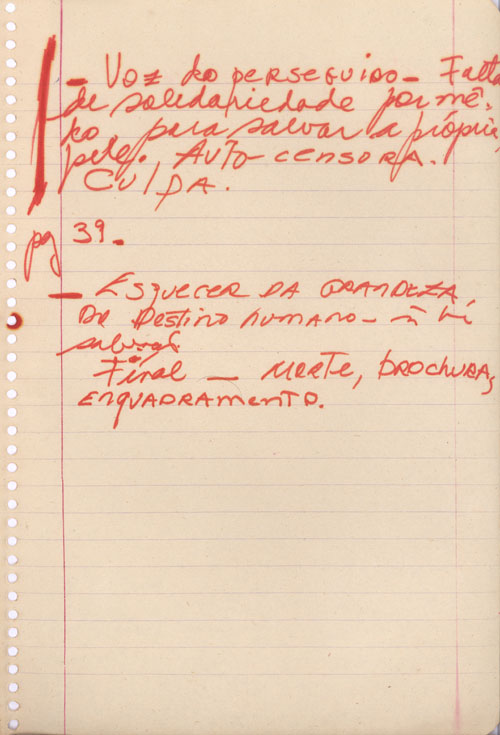 - Voz do perseguido - Falta
de solidariedade por mê-
do, para salvar a própria
pele. AUTO-CENSORA.
CULPA.
pg 39.
- ESQUECER DA GRANDEZA,
DO DESTINO HUMANO - ñ há
salvação
Final - MORTE, BROCHURA,
ENQUADRAMENTO.